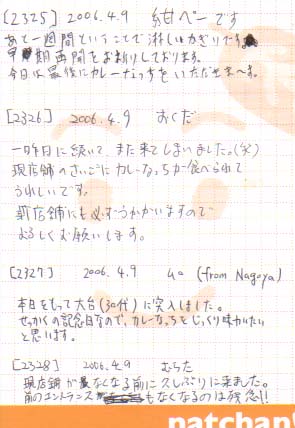 [2325] 2006.4.9 紺ペーです
あと一週間ということで淋しいかぎりです。
早期再開をお祈りしております。
今日は最後にカレーなっちをいただきまーす。
[2326] 2006.4.9 おくだ
一昨日に続いて、また来てしまいました。(笑)
現店舗のさいごにカレーなっちが食べられて
うれしいです。
新店舗にも必ずうかがいますので
よろしくお願いします。
[2327] 2006.4.9 (from Nagoya)
本日をもって大台(30代)に突入しました。
せっかくの記念日なので、カレーなっちをじっくり味わいたい
と思います。
[2328] 2006.4.9 むらた
現店舗がなくなる前に久しぶりに来ました。
前のエントランスもなくなるのは残念!!
natchan